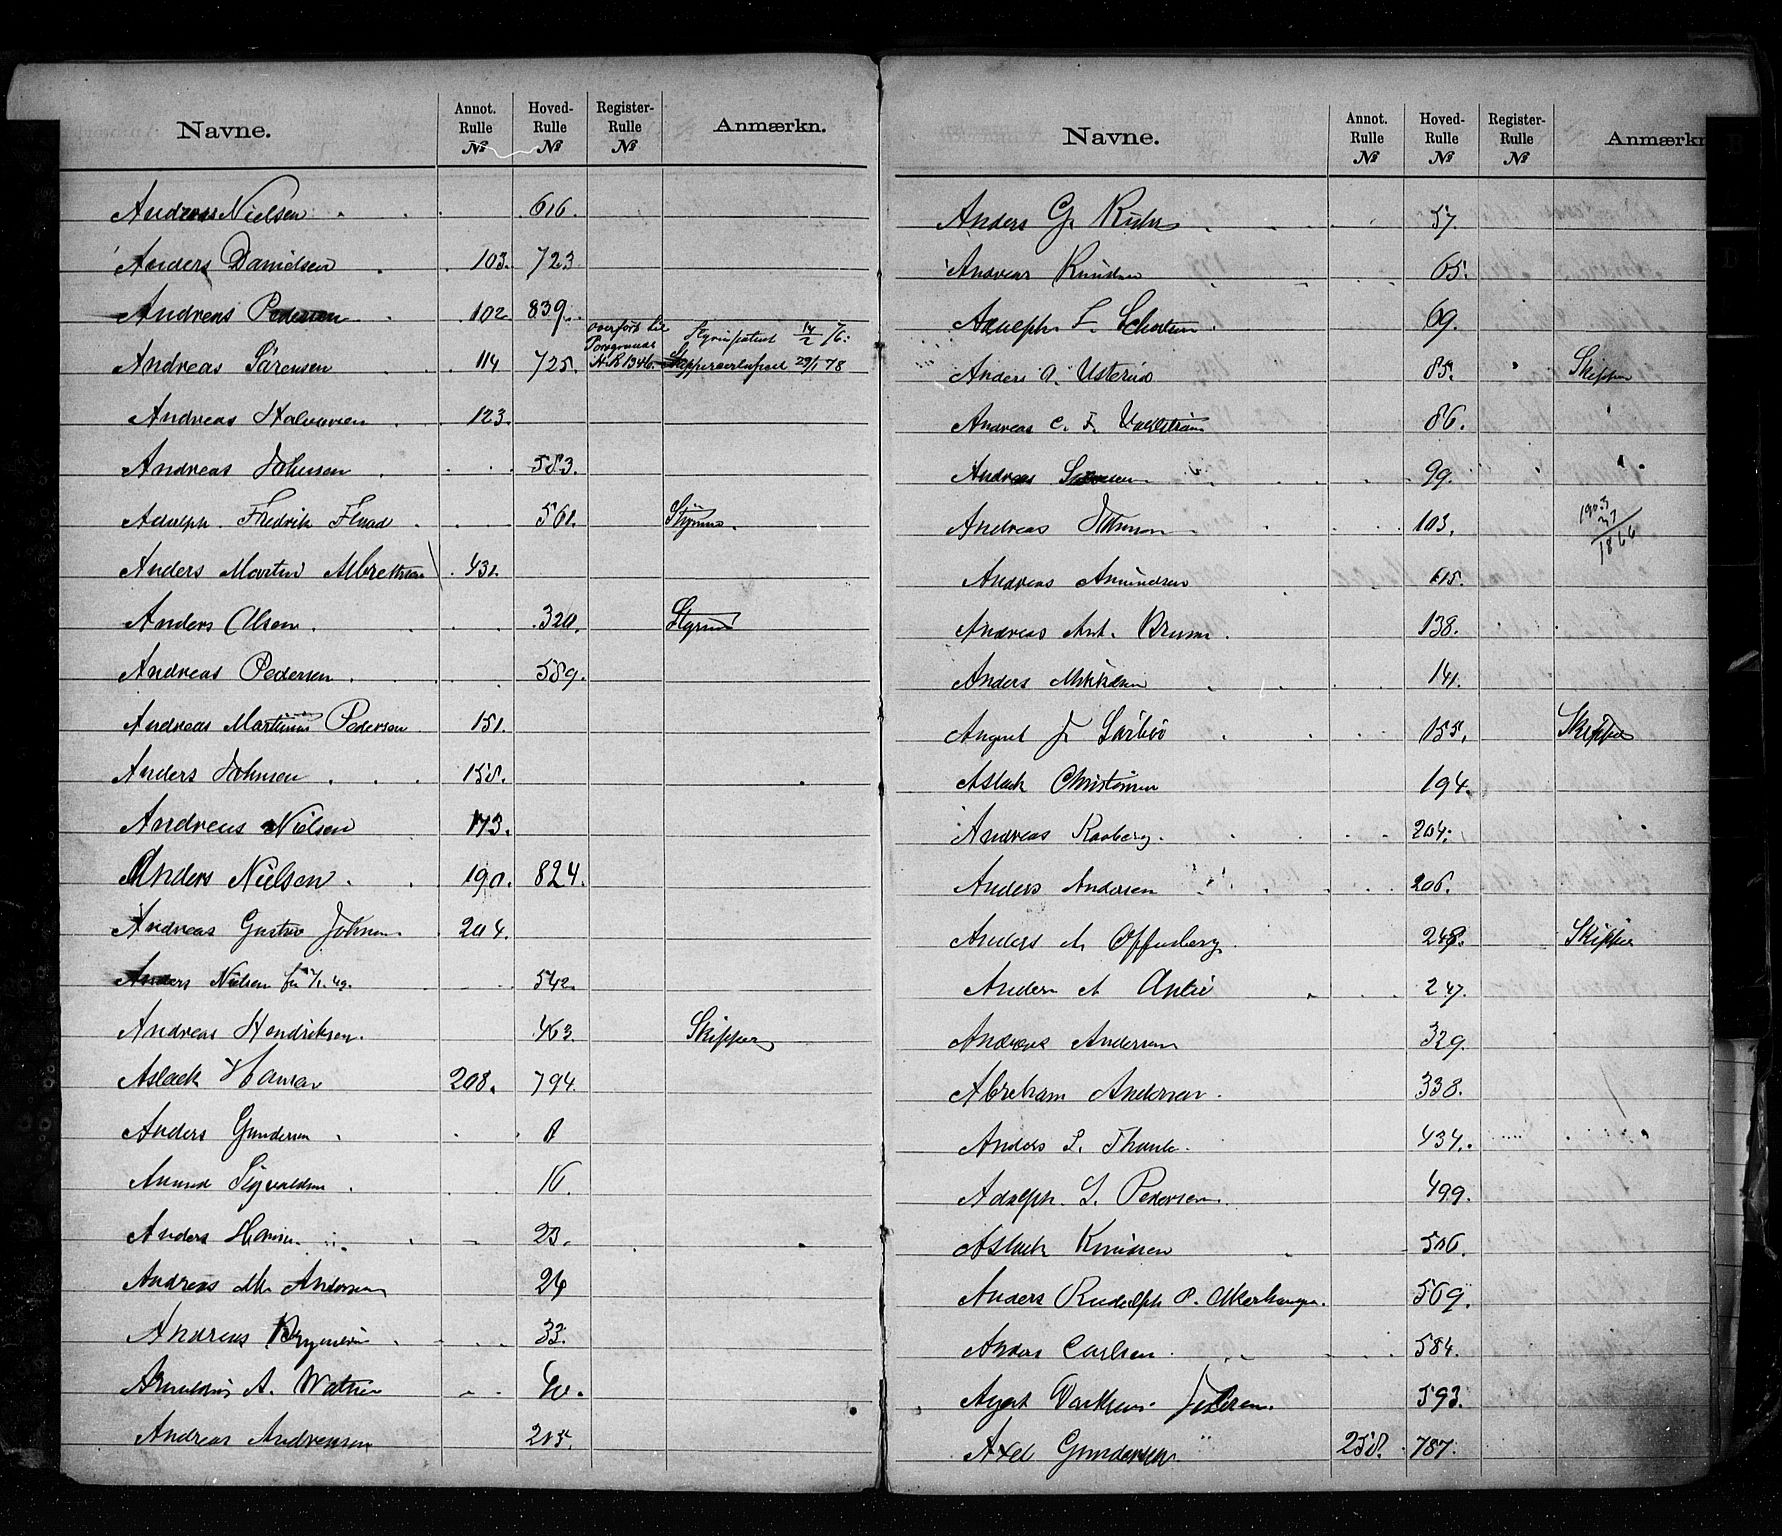 Navne. Annot. Rulle № Hoved-Rulle № Register-Rulle № Anmærkn.
Andreas Nielsen 616.
Anders Danielsen 103. 723.
Andreas Pedersen 102 839.
Andreas Sörensen 114 725. overfört til Porsgrunds H.R 1346. Styrmpatent 14/2 76. 29/1 78
Andreas Halvorsen 123.
Andreas Johnsen 583.
Adolph Fredrik Flood 561. Styrmd.
Anders Martin Albrethsen 431.
Anders Olsen 320. Styrmd
Andreas Pedersen 589.
Andreas Martinius Pedersen 151.
Anders Johnsen 158.
Andreas Nielsen 173.
Anders Nielsen 190. 824.
Andreas Gustav Johnsen 204.
Anders Nielsen 542.
Andreas Hendriksen 463. Skipper
Aslack Hansen 208. 794.
Anders Gundersen 8
Amund Sigvaldsen 16.
Anders Hansen 23.
Andreas M. Andersen 26
Andreas 33.
A. 40.
Andreas Andreasen 205.
Navne. Annot. Rulle № Hoved-Rulle № Register-Rulle № Anmærkn
Anders G. 57.
Andreas Knudsen 65.
Adolph L. 69.
Anders O. Usterud 85. Skipper
Andreas C. F. Vahlstrøm 86.
Andreas 99.
Andreas Johnson 103. 1903 37 1866
Andreas Amundsen 115.
Andreas Ant. Bruun 138.
Anders Mikkelsen 141.
August J. Sörbö 155. Skipper
Aslack Christensen 194.
Andreas Raaberg. 204.
Anders Andersen 206.
Anders A. Offenberg 248. Skipper
Anders A. 247.
Andreas Andersen 329.
Abraham Andersen 338.
Anders L. 434.
Adolph L. Pedersen 499.
Aslack Knudsen 506.
Anders Rudolph P. Akerhaugen. 569.
Anders Carlsen. 584.
593.
Axel Gundersen 258. 787.